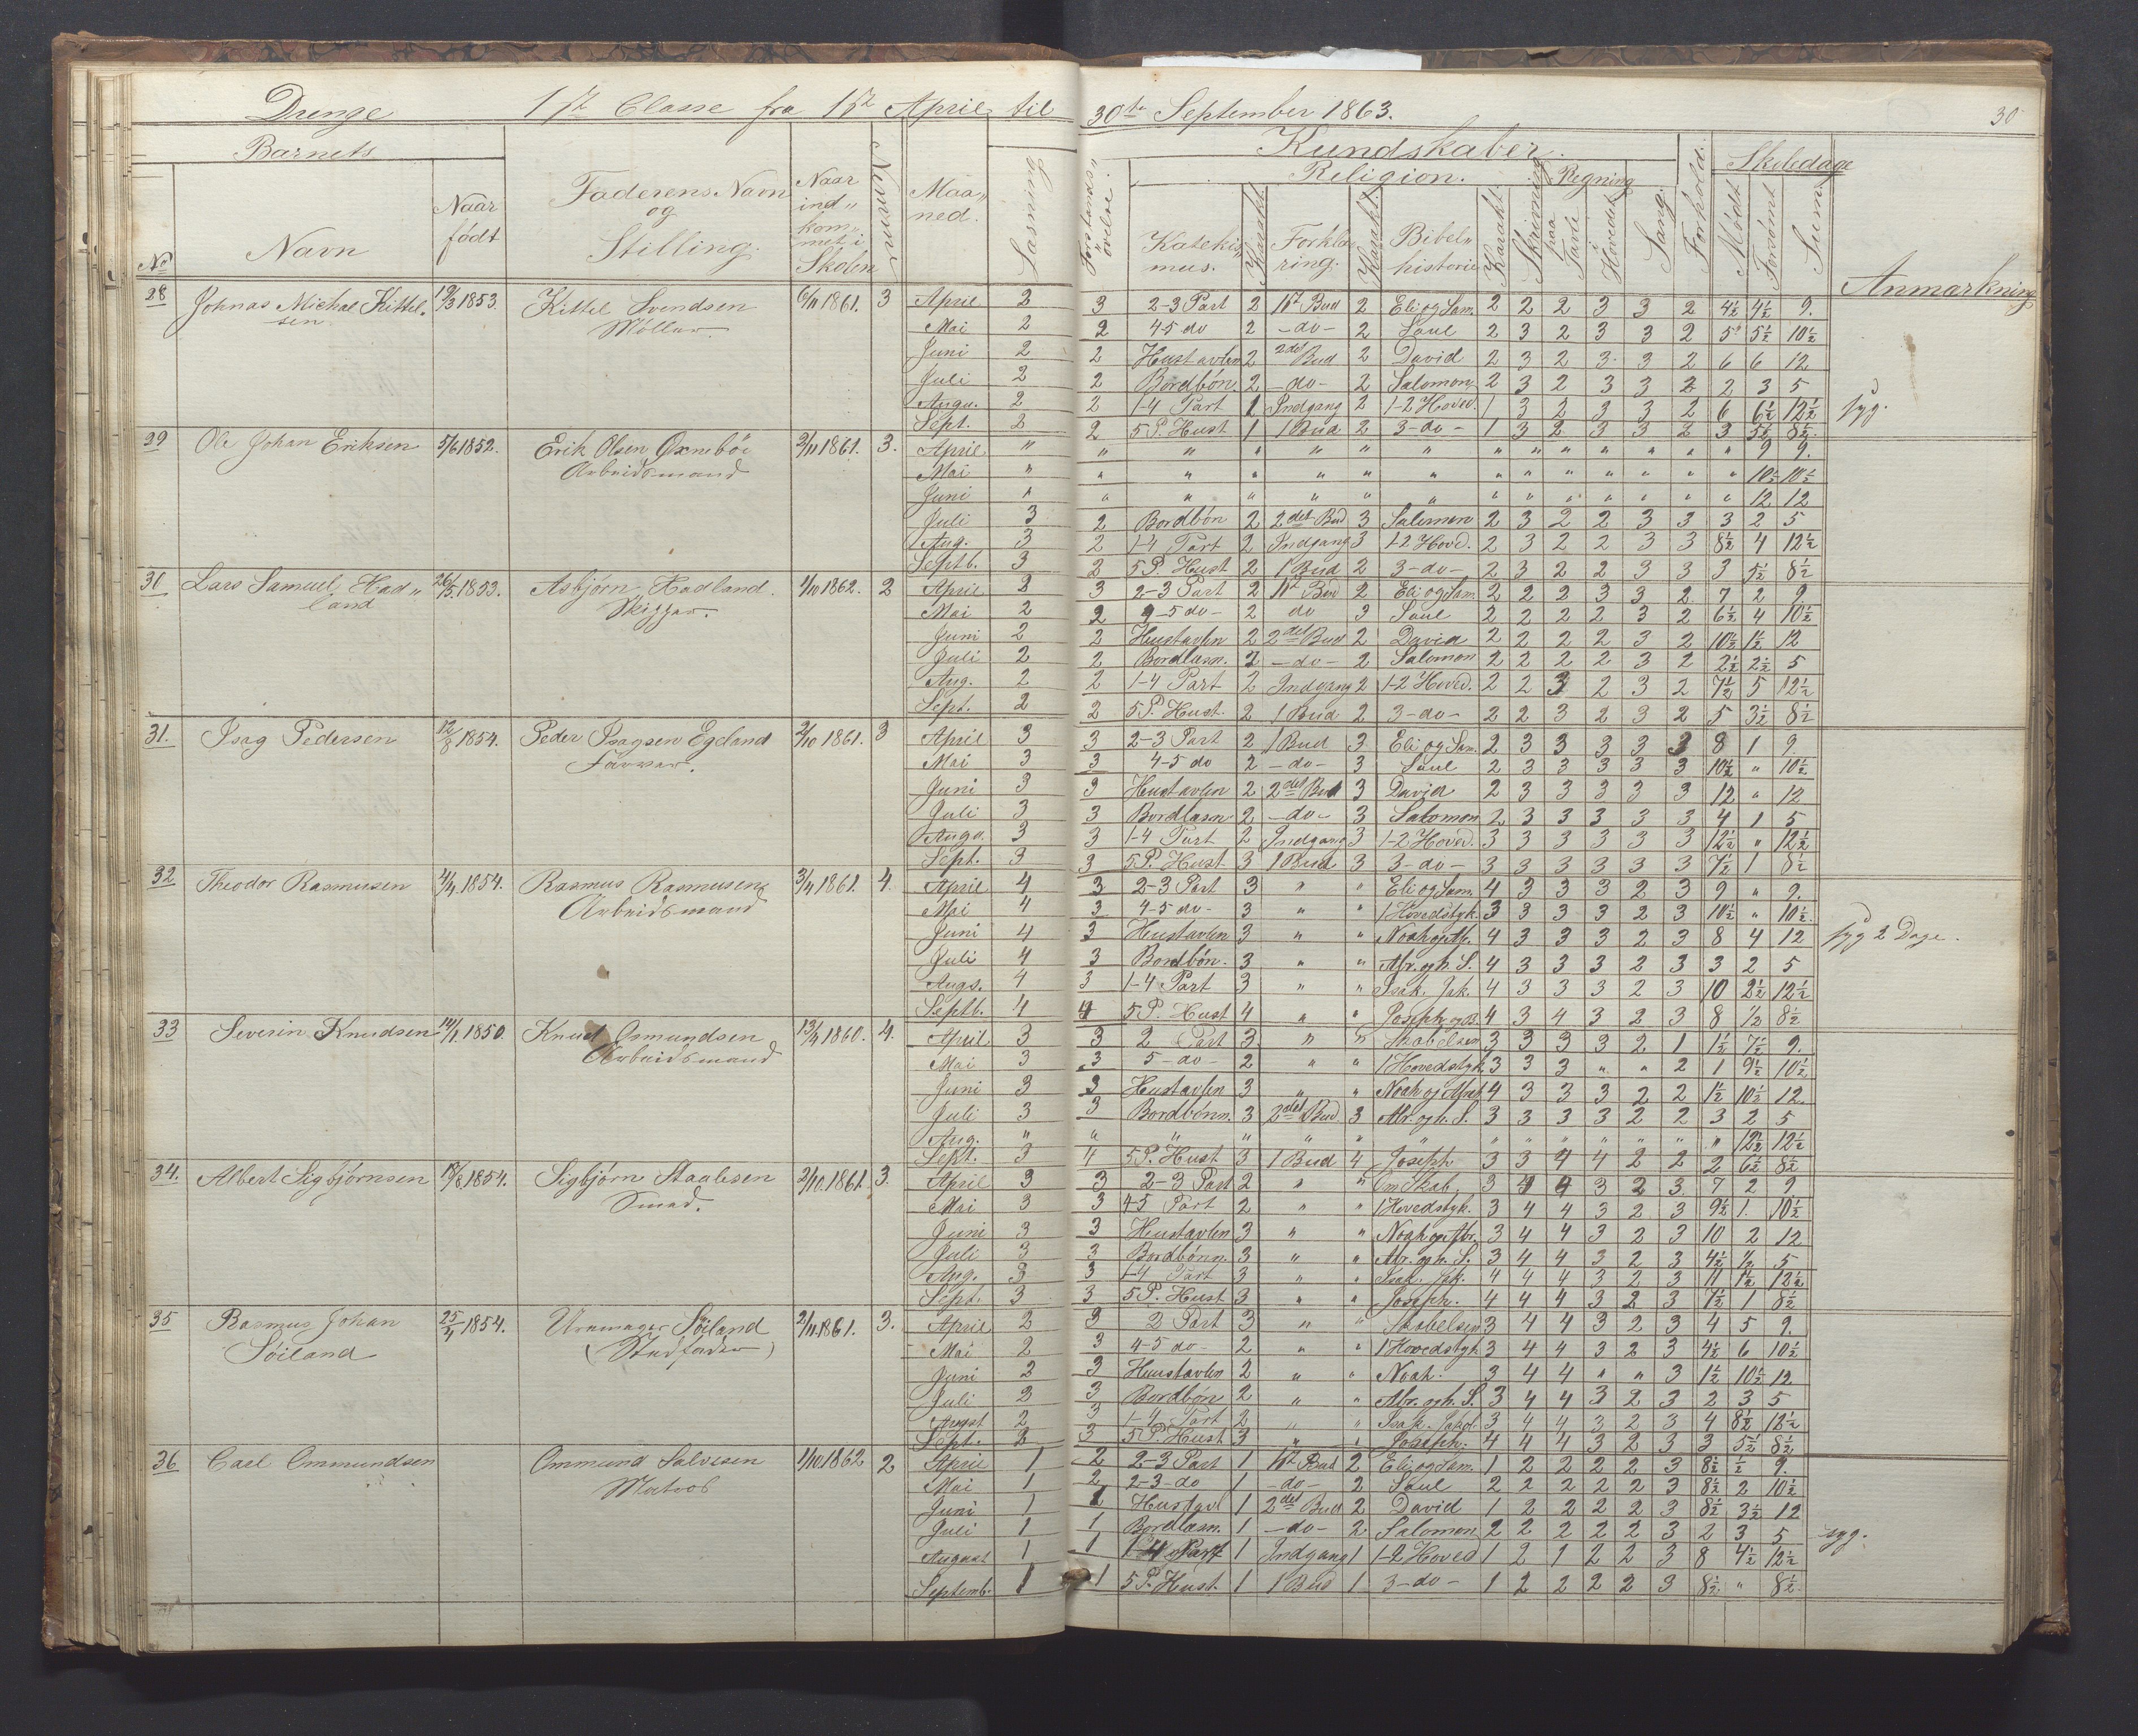 Drenge 1ste Classe fra 1ste April til 30te September 1863. 30
Barnets Faderens Navn og Stilling. Naar ind„kommet i Skolen Maa„ned. Læsning Forstands„øvelse. Kundskaber. Forhold. Skoledage
Religion. Skrivning Regning Sang.
No Navn Naar født Katekis„mus. Karakt. Forkla„ring. Karakt. Bibel„historie Karakt. paa Tavle i Hovedet Mødt Forsømt Sum Anmærkning
28 Johnas Michal Kittel„sen 19/3 1853. Kittel Svendsen Møller. 6/11 1861. 3 April 2 3 2-3 Part 2 1ste Bud 2 Eli og Sam. 2 2 2 3 3 2 4½ 4½ 9.
Mai 2 2 4-5 do 2 -do- 2 Saul 2 3 2 3 3 2 5 5½ 10½
Juni 2 2 Hustavlen 2 2det Bud 2 David 2 3 2 3 3 2 6 6 12
Juli 2 2 Bordbøn. 2 -do- 2 Salomon 2 3 2 3 3 2 2 3 5
Augu. 2 2 1-4 Part 1 Indgang 2 1-2 Hoved. 1 3 2 3 3 2 6 6½ 12½ syg.
Sept. 2 2 5 P. Hust 1 1 Bud 2 3-do- 1 3 2 3 3 2 3 5½ 8½
29 Ole Johan Eriksen 5/6 1852. Erik Olsen Oxnebøe Arbeidsmand 2/11 1861. 3. April " " " " " " " " " " " " " " 9 9.
Mai " " " " " " " " " " " " " " 10½ 10½
Juni " " " " " " " " " " " " " " 12 12
Juli 3 2 Bordbøn 2 2det Bud 3 Salomon 2 3 2 2 3 3 3 2 5
Aug. 3 2 1-4 Part 2 Indgang 3 1-2 Hoved. 2 3 2 2 3 3 8½ 4 12½
Septb. 3 2 5 P. Hust 2 1 Bud 2 3-do- 2 3 2 2 3 3 3 5½ 8½
30 Lars Samuel Had„land 26/5 1853. Asbjørn Hadland. Skipper. 1/10 1862. 2 April 2 3 2-3 Part 2 1ste Bud 2 Eli og Sam. 2 2 2 3 3 2 7 2 9
Mai 2 2 4-5 do- 2 do 3 Saul 2 2 2 2 3 2 6½ 4 10½
Juni 2 2 Hustavlen 2 2det Bud 2 David 2 2 2 2 3 2 10½ 1½ 12
Juli 2 2 Bordlæsn. 2 -do- 2 Salomon 2 2 2 2 3 2 2½ 2½ 5
Aug. 2 2 1-4 Part 2 Indgang 2 1-2 Hoved. 2 2 3 2 3 2 7½ 5 12½
Sept. 2 2 5 P. Hust. 2 1 Bud 2 3-do- 2 2 3 2 3 2 5 3½ 8½
31. Isag Pedersen 12/8 1854. Peder Isagsen Egeland Farver. 2/10 1861. 3 April 3 3 2-3 Part 2 1 Bud 3 Eli og Sam. 2 3 3 3 3 3 8 1 9.
Mai 3 3 4-5 do 2 -do- 3 Saul 2 3 3 3 3 3 10½ " 10½
Juni 3 3 Hustavlen 2 2det Bud 3 David 2 3 3 3 3 3 12 " 12
Juli 3 3 Bordlæsn 2 -do- 3 Salomon 2 3 3 3 3 3 4 1 5
Augu. 3 3 1-4 Part 2 Indgang 3 1-2 Hoved. 3 3 3 3 3 3 12½ " 12½
Sept. 3 3 5 P. Hust 3 1 Bud 3 3-do- 3 3 3 3 3 3 7½ 1 8½
32 Theodor Rasmusen 4/4 1854. Rasmus Rasmusen Arbeidsmand 3/4 1861. 4. April 4 3 2-3 Part 3 " " Eli og Sam. 4 3 3 3 2 3 9 " 9.
Mai 4 3 4-5 do- 3 " " 1 Hovedstyk. 3 3 3 3 2 3 10½ " 10½
Juni 4 3 Hustavlen 3 " " Noah og Ab. 4 3 3 3 2 3 8 4 12 syg 2 Dage.
Juli 4 3 Bordbøn. 3 " " Abr. og h. S. 4 3 3 3 2 3 3 2 5
Augs. 4 3 1-4 Part 3 " " Isak. Jak. 4 3 3 3 2 3 10 2½ 12½
Septb. 4 4 5 P. Hust 4 " " Joseph og B. 4 3 4 3 2 3 8 ½ 8½
33 Severin Knudsen 12/1 1850. Knud Osmundsen Arbeidsmand 13/4 1860. 4. April 3 3 2 Part 3 " " Skabelsen 3 3 3 3 2 1 1½ 7½ 9.
Mai 3 3 5-do- 2 " " 1 Hovedstyk 3 3 3 " " 2 1 9½ 10½
Juni 3 3 Hustavlen 3 " " Noah og Abrah 4 3 3 3 2 2 1½ 10½ 12
Juli 3 3 Bordbønn. 3 2det Bud 3 Abr. og h. S. 3 3 3 3 2 2 3 2 5
Aug. " " " " " " " " " " " " " " 12½ 12½
Sept. 3 4 5 P. Hust 3 1 Bud 4 Joseph 3 3 4 4 2 2 2 6½ 8½
34. Albert Sigbjørnsen 18/8 1854. Sigbjørn Staalesen Smed. 2/10. 1861. 3. April 3 3 2-3 Part 2 " " Om Skab. 3 4 4 3 2 3 7 2 9
Mai 3 3 4-5 Part 2 " " 1 Hovedstyk. 3 4 4 3 2 3 9½ 1. 10½
Juni 3 3 Hustavlen 3 " " Noah og Abr. 3 4 4 3 2 3 10 2 12
Juli 3 3 Bordbønn. 3 " " Abr. og h. S. 3 4 4 3 2 3 4½ ½ 5
Aug. 3 3 1-4 Part 3 " " Isak. Jak. 4 4 4 3 2 3 11 1½ 12½
Sept. 3 3 5 P. Hust 3 " " Joseph. 4 4 4 3 2 3 7½ 1 8½
35 Rasmus Johan Søiland 25/4 1854. Urmager Søiland (Stedfader) 2/11. 1861. 3. April 2 3 2 Part 3 " " Skabelsen 3 4 4 3 2 3 4 5 9.
Mai 2 3 4-5 do- 2 " " 1 Hovedstyk 3 4 4 3 2 3 4½ 6 10½
Juni 2 3 Huustavlen 2 " " Noah. 3 4 4 " " 3 1½ 10½ 12
Juli 2 3 Bordbøn 2 " " Abr. og h. S. 3 4 4 3 2 3 2 3 5
Augst 2 3 1-4 Part 2 " " Isak. Jakob. 3 4 4 3 2 3 4 8½ 12½
Sept. 2 3 5 P. Hust 3 " " Joseph. 4 4 4 3 2 3 3 5½ 8½
36 Carl Ommundsen Ommund Salvesen Matros 1/10. 1862 2 April 1 2 2-3 Part 1 1ste Bud 2 Eli og Sam. 1 2 2 2 2 3 8½ ½ 9.
Mai 1 2 2-3-do 1 -do- 2 Saul 2 2 2 2 2 3 8½ 2 10½
Juni 1 1 Hustavl 1 2det Bud 2 David 1 2 2 2 2 3 8½ 3½ 12
Juli 1 1 Bordlæsn. 1 -do- 2 Salomon 2 2 2 2 2 3 2 3 5 syg.
August 1 1 1-4 Part 1 Indgang 1 1-2 Hoved 1 2 1 2 2 3 8 4½ 12½
Septemb. 1 1 5 P. Hust. 1 1 Bud 1 3-do- 1 2 2 2 2 3 8½ " 8½